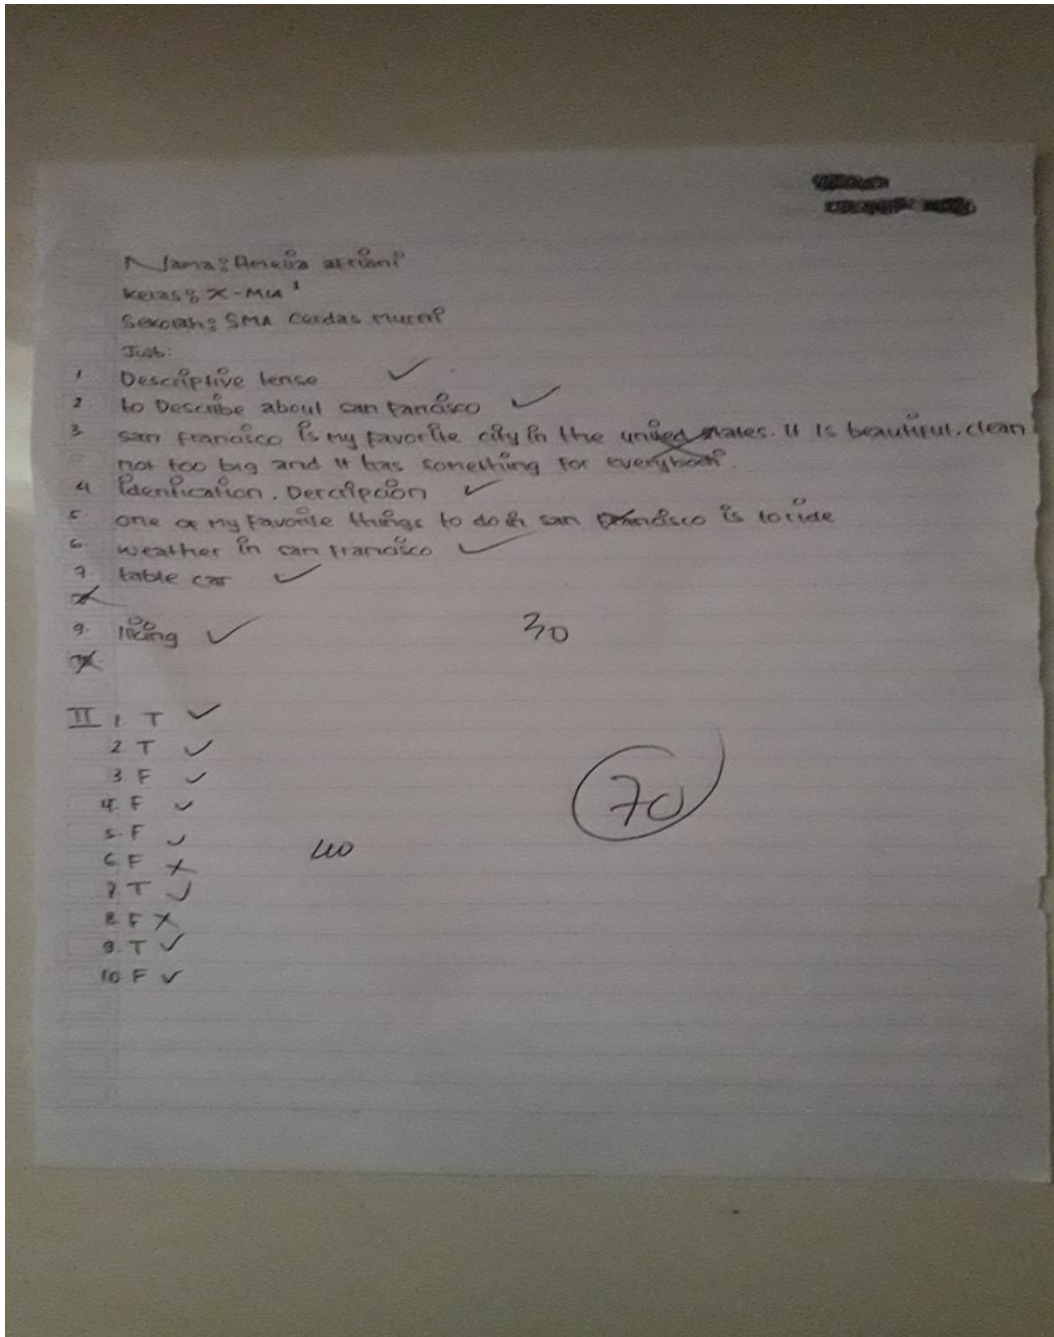 Nama: Amelia afriani
Kelas: X-MIA 1
Sekolah: SMA Cerdas Murni
Jwb:
1 Descriptive tense
2. to Describe about san Fancisco
3 san Francisco is my favorite city in the united states. It is beautiful. clean
not too big and it has something for everybody.
4 idenfication. Dercripcion
5 one of my favorite things to do in san Francisco is to ride
6. weather in san francisco
7. table car
9. liking
30
II 1. T
2 T
3. F
4. F
5. F
70
6 F
40
7. T
8. F
9. T
10 F